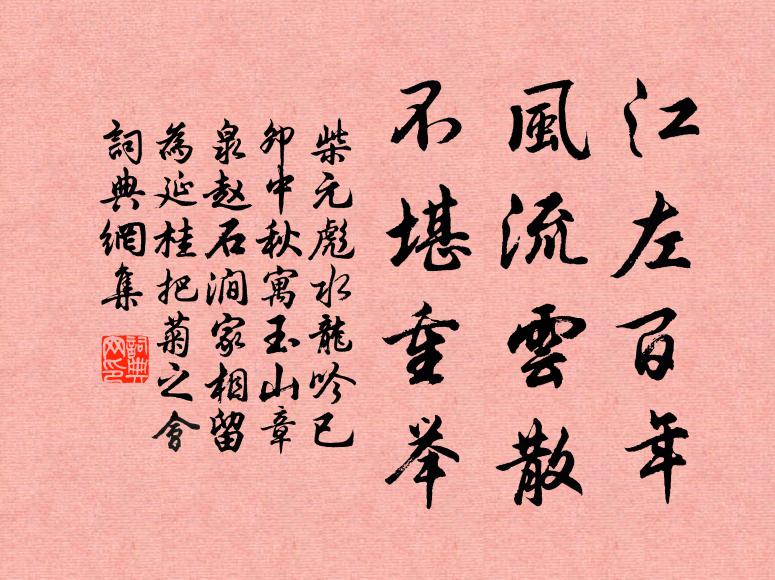 江左百年
風流雲散
不堪重举
柴元彪水龍吟已
卯中秋寓玉山章
泉赵石澗家相留
為延桂把菊之會
詞典網集
詞典
网印